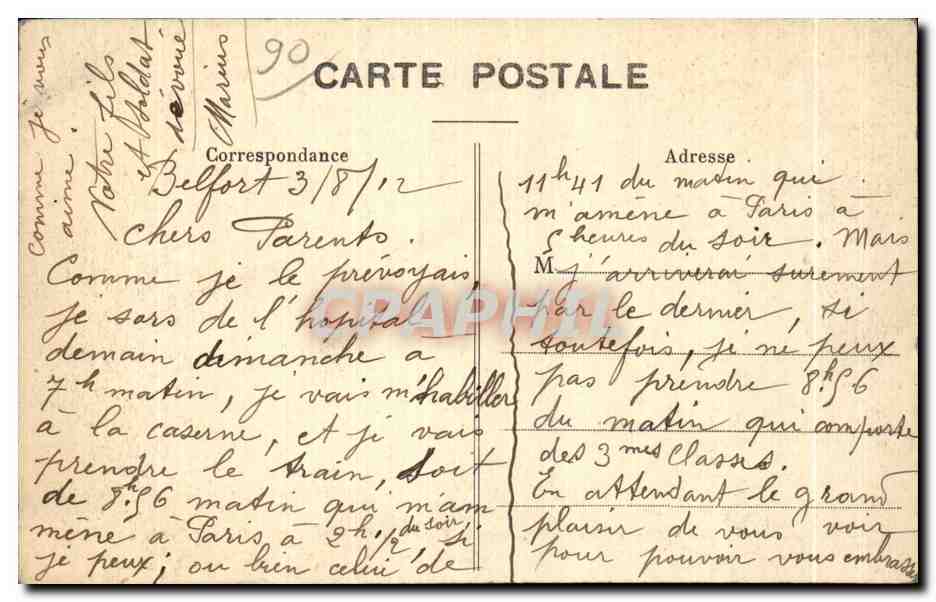 90
CARTE POSTALE
Correspondance
Belfort 3/8/12
Chers Parents.
Comme je le prévoyais,
je sors de l'hopital
demain dimanche a
7h matin, je vais m'habiller
à la caserne, et je vais
prendre le train, soit
de 8h.56 matin qui m'am
mène à Paris à 2h.1/2 du soir si
je peux; ou bien celui de
Adresse
11h41 du matin qui
m'amène à Paris à
5 heures du soir. Mais
M
j'arriverai surement
par le dernier, si
toutefois, je ne peux
pas prendre 8h.56
du matin qui comporte
des 3mes Classes.
En attendant le grand
plaisir de vous voir
pour pouvoir vous embrasser
comme je vous
aime.
Votre fils
et Soldat
dévoué
Marius
CPAPHIL